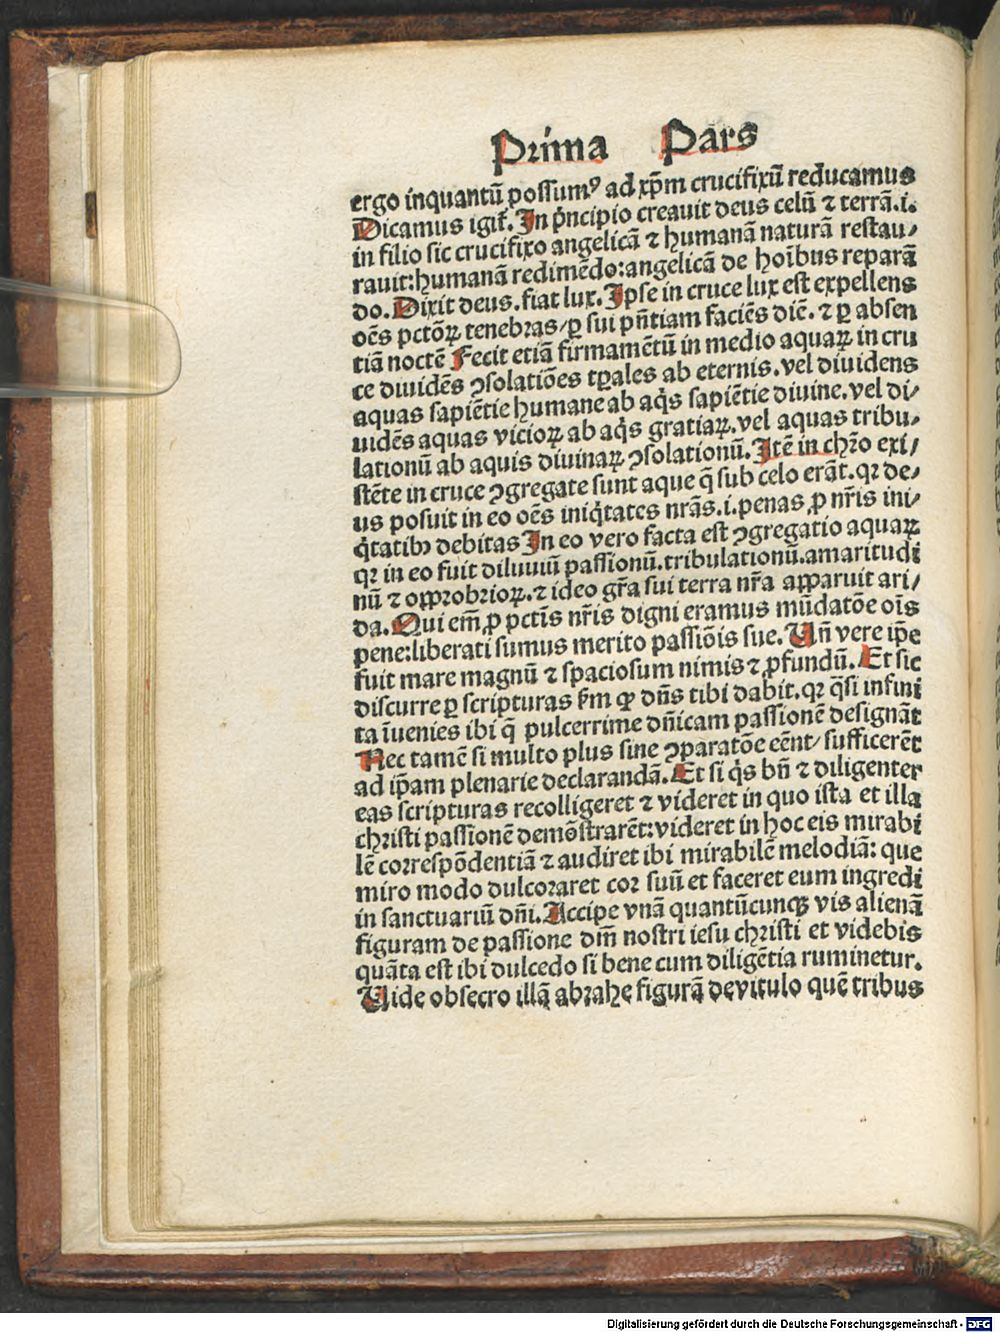 Prima Pars
ergo inquantũ possumꝰ ad xp̃m crucifixũ reducamus
Dicamus igit̃. In pͥncipio creauit deus celũ ⁊ terrã.i.
in filio sic crucifixo angelicã ⁊ humanã naturã restau⸗
rauit:humanã redimẽdo:angelicã de hoĩbus reparã
do. Dixit deus. fiat lux. Ipse in cruce lux est expellens
oẽs pctõꝝ tenebras/ꝑ sui pñtiam faciẽs diẽ. ⁊ ꝑ absen
tiã noctẽ Fecit etiã firmamẽtũ in medio aquaꝝ in cru
ce diuidẽs ꝯsolatiões tꝑales ab eternis. vel diuidens
aquas sapiẽtie humane ab aqͥs sapiẽtie diuine. vel di⸗
uidẽs aquas vicioꝝ ab aqͥs gratiaꝝ. vel aquas tribu⸗
lationũ ab aquis diuinaꝝ ꝯsolationũ. Itẽ in chr̃o exi⸗
stẽte in cruce ꝯgregate sunt aque q̃ sub celo erãt. qꝛ de⸗
us posuit in eo oẽs iniqͥtates nr̃as.i. penas ꝓ nr̃is ini⸗
qͥtatibꝫ debitas In eo vero facta est ꝯgregatio aquaꝝ
qꝛ in eo fuit diluuiũ passionũ. tribulationũ. amaritudi
nũ ⁊ opprobrioꝝ. ⁊ ideo gr̃a sui terra nr̃a apparuit ari⸗
da. Qui em̃ ꝓ pctĩs nr̃is digni eramus mũdatõe oĩs
pene:liberati sumus merito passiõis sue. Uñ vere ip̃e
fuit mare magnũ ⁊ spaciosum nimis ⁊ ꝓfundũ. Et sic
discurre ꝑ scripturas ẜm ꝙ dñs tibi dabit. qꝛ q̃si infini
ta ĩuenies ibi q̃ pulcerrime dñicam passionẽ designãt
Nec tamẽ si multo plus sine ꝯparatõe eẽnt/ sufficerẽt
ad ip̃am plenarie declarandã. Et si qͥs bñ ⁊ diligenter
eas scripturas recolligeret ⁊ videret in quo ista et illa
christi passionẽ demõstrarẽt:videret in hoc eis mirabi
lẽ correspõdentiã ⁊ audiret ibi mirabilẽ melodiã: que
miro modo dulcoraret cor suũ et faceret eum ingredi
in sanctuariũ dñi. Accipe vnã quantũcunqꝫ vis alienã
figuram de passione dñi nostri iesu christi et videbis
quãta est ibi dulcedo si bene cum diligẽtia ruminetur.
Uide obsecro illã abrahe figurã de vitulo quẽ tribus
Digitalisierung gefördert durch die Deutsche Forschungsgemeinschaft - DFG